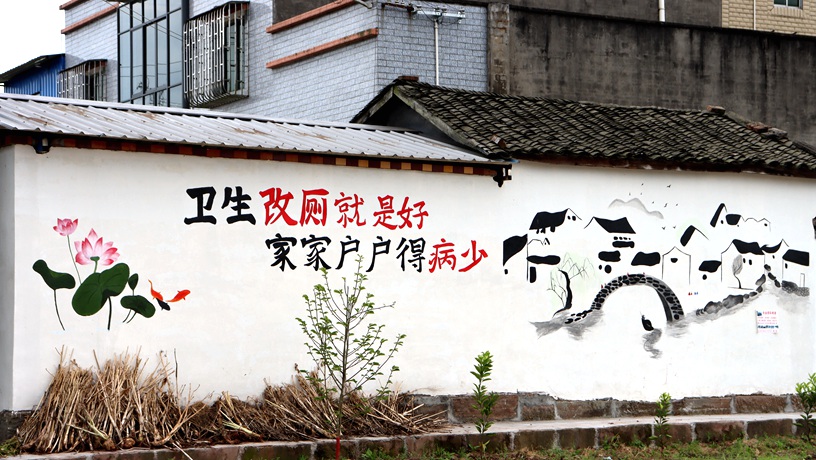 卫生改厕就是好
家家户户得病少